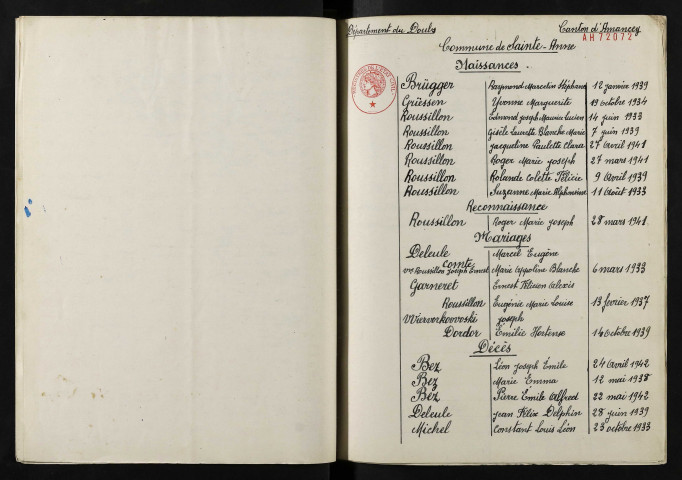 Département du Doubs Canton d'Amancey
AH72072
Commune de Sainte-Anne
Naissances.
Brügger Raymond Marcelin Stéphane 12 janvier 1939
Grüssen Yvonne Marguerite 19 octobre 1934
Roussillon Edmond Joseph Maurice Lucien 14 juin 1933
Roussillon Gisèle Laurette Blanche Marie 7 juin 1939
Roussillon Jacqueline Paulette Clara 27 Avril 1941
Roussillon Roger Marie Joseph 27 mars 1941
Roussillon Rolande Colette Félicie 9 Avril 1939
Roussillon Suzanne Marie Alphonsine 11 Août 1933
Reconnaissance
Roussillon Roger Marie Joseph 28 mars 1941
Mariages
Deleule Marcel Eugène
Comte
Vve Roussillon Joseph Ernest Marie Appoline Blanche 6 mars 1933
Garneret Ernest Félicien Alexis
Roussillon Eugénie Marie Louise 13 février 1937
Wiervorkovvoski Joseph
Dordor Émilie Hortense 14 octobre 1939
Décès
Bez Léon Joseph Émile 24 Avril 1942
Bez Marie Emma 12 mai 1938
Bez Pierre Emile Alfred 22 mai 1942
Deleule Jean Félix Delphin 28 juin 1939
Michel Constant Louis Léon 23 octobre 1933